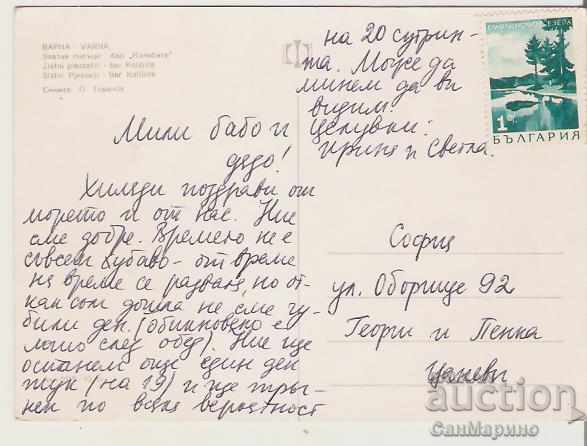 ВАРНА - VARNA
Златни пясъци - бар "Колибата"
Zlatni piassatzi - bar Koliba
Снимка П.
Мили бабо и
дядо!
Хиляди поздрави от
морето и от нас. Ние
сме добре. Времето не е
съвсем хубаво - от време
на време се разваля, но от-
как съм дошла не сме гу-
били ден. (обикновено е
лошо след обед). Ние ще
останем още един ден
тук (на 19) и ще тръг-
нем по всяка вероятност
на 20 сутрин-
та. Може да
минем да ви
видим!
Целувки:
Ирина и Светла.
СМОЛЯНСКОТО ЕЗЕРО
1
БЪЛГАРИЯ
София
ул. Оборище 92
Георги и Пенка
Цаневи
auction
СанМарино